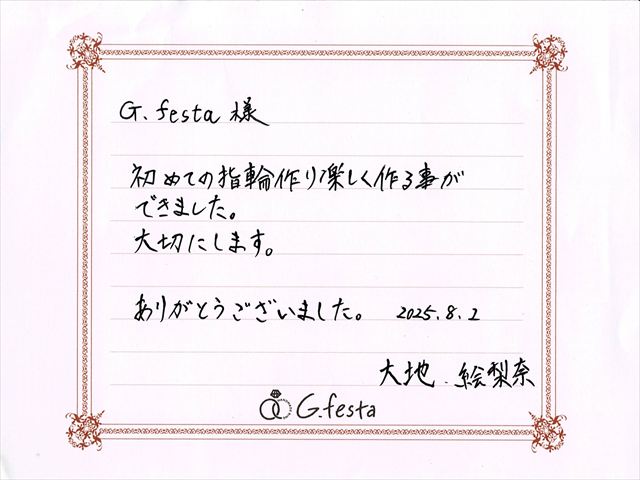 G.festa 様
初めての指輪作り楽しく作る事が
できました。
大切にします。
ありがとうございました。 2025.8.2
大地.絵梨奈
G.festa